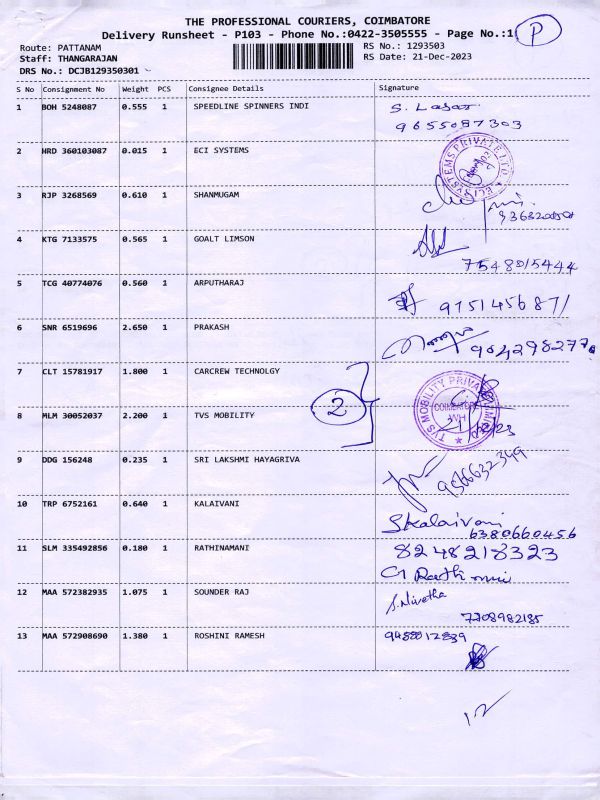 THE PROFESSIONAL COURIERS, COIMBATORE
Delivery Runsheet - P103 - Phone No.:0422-3505555 - Page No.:1 P
Route: PATTANAM RS No.: 1293503
Staff: THANGARAJAN RS Date: 21-Dec-2023
DRS No.: DCJB129350301
S No Consignment No Weight PCS Consignee Details Signature
1 BOH 5248087 0.555 1 SPEEDLINE SPINNERS INDI S. Lasar
9655087303
2 HRD 360103087 0.015 1 ECI SYSTEMS
3 RJP 3268569 0.610 1 SHANMUGAM
4 KTG 7133575 0.565 1 GOALT LIMSON
7548015444
5 TCG 40774076 0.560 1 ARPUTHARAJ
6 SNR 6519696 2.650 1 PRAKASH
9042982770
7 CLT 15781917 1.800 1 CARCREW TECHNOLGY
2
8 MLM 30052037 2.200 1 TVS MOBILITY
TVS MOBILITY PRIVATE LIMITED
COIMBATORE
WH
9 DDG 156248 0.235 1 SRI LAKSHMI HAYAGRIVA
9566632349
10 TRP 6752161 0.640 1 KALAIVANI
S Kalaivani
6380660456
11 SLM 335492856 0.180 1 RATHINAMANI 8248218323
12 MAA 572382935 1.075 1 SOUNDER RAJ S. Nivetha
7708982185
13 MAA 572908690 1.380 1 ROSHINI RAMESH 9488012839